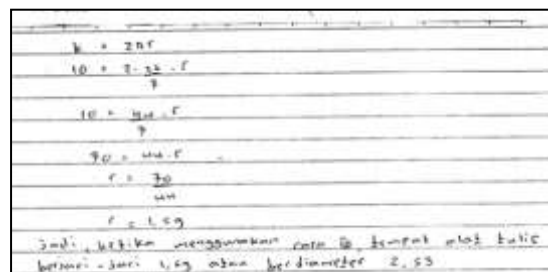 k = 2πr
10 = 2 · 22/7 · r
10 = 44/7 · r
70 = 44 · r
r = 70/44
r = 1,59
Jadi, ketika menggunakan cara tempat alat tulis
berjari-jari 1,59 atau berdiameter 2,59